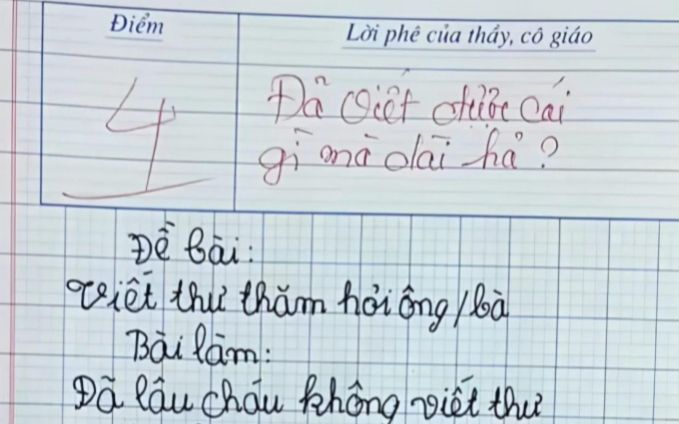 Điểm
Lời phê của thầy, cô giáo
4
Đã viết được cái
gì mà dài hả?
Đề bài:
Viết thư thăm hỏi ông/bà
Bài làm:
Đã lâu cháu không viết thư